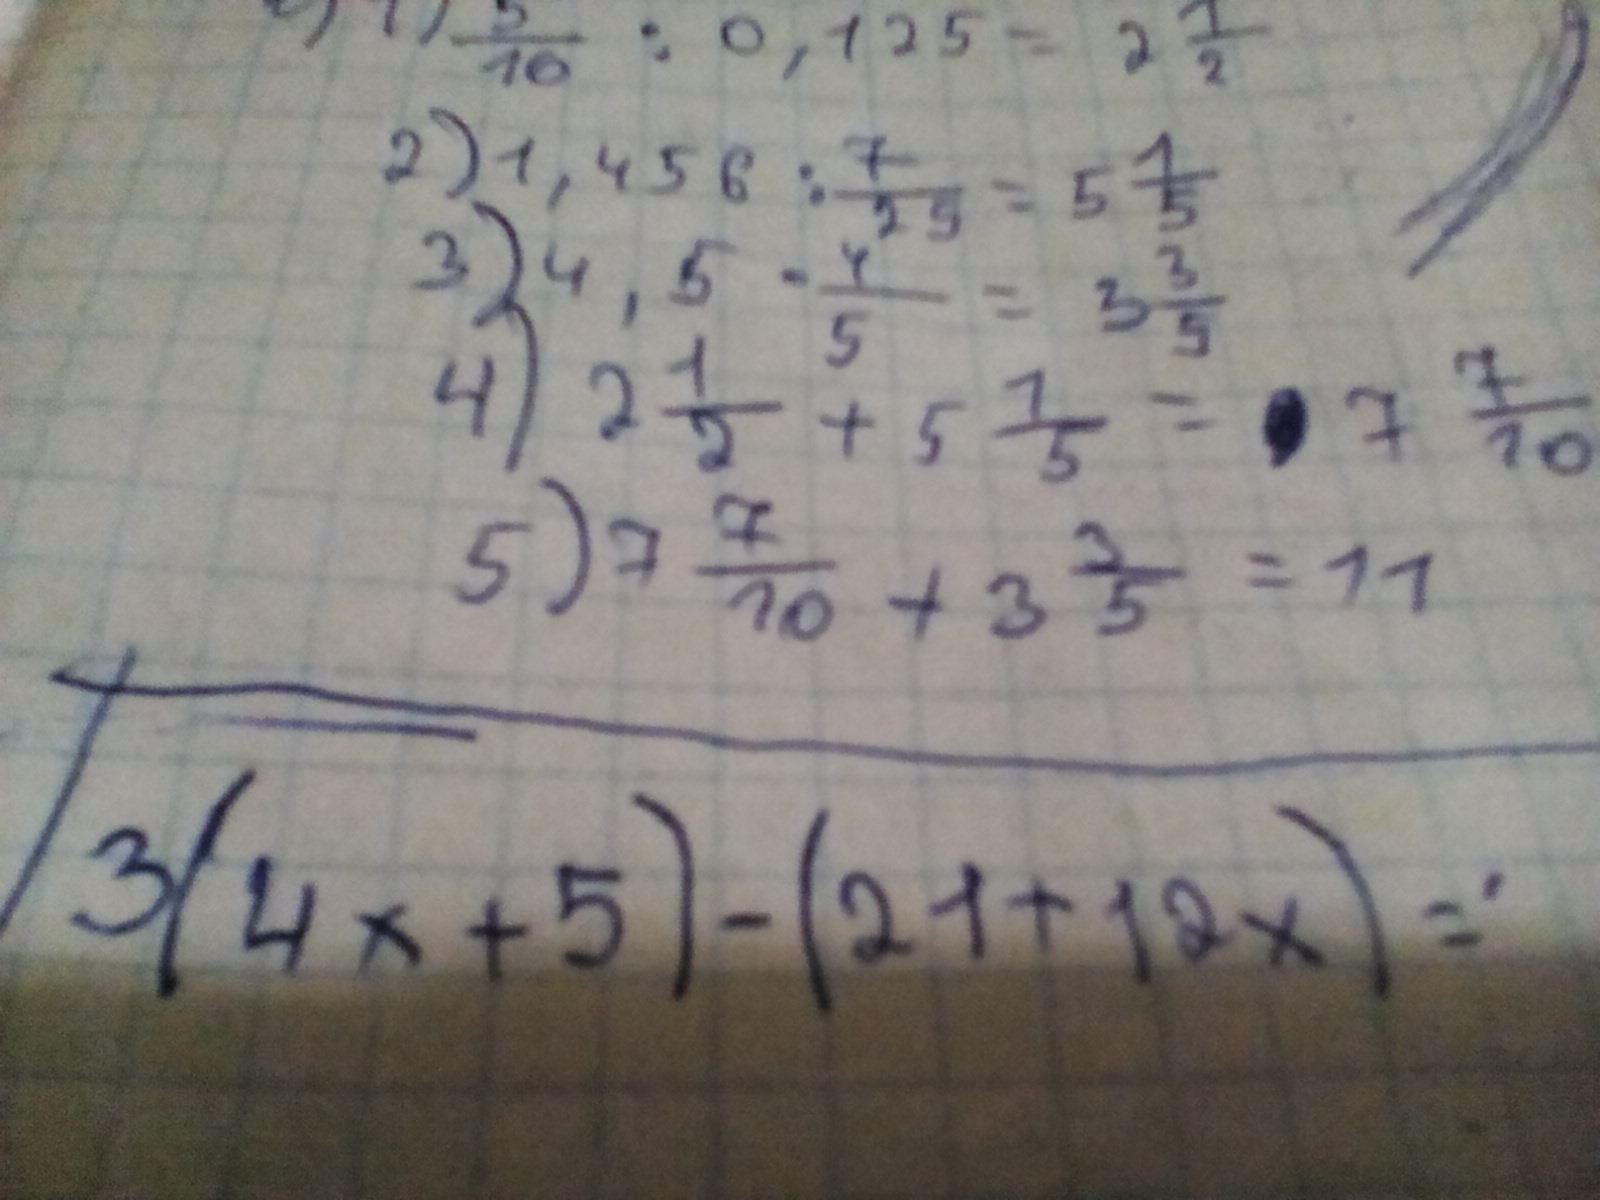 1) 5/10 : 0,125 = 2 1/2
2) 1,456 : 7/25 = 5 1/5
3) 4,5 · 4/5 = 3 3/5
4) 2 1/2 + 5 1/5 = 7 7/10
5) 7 7/10 + 3 3/5 = 11
3(4x+5)-(21+12x)=